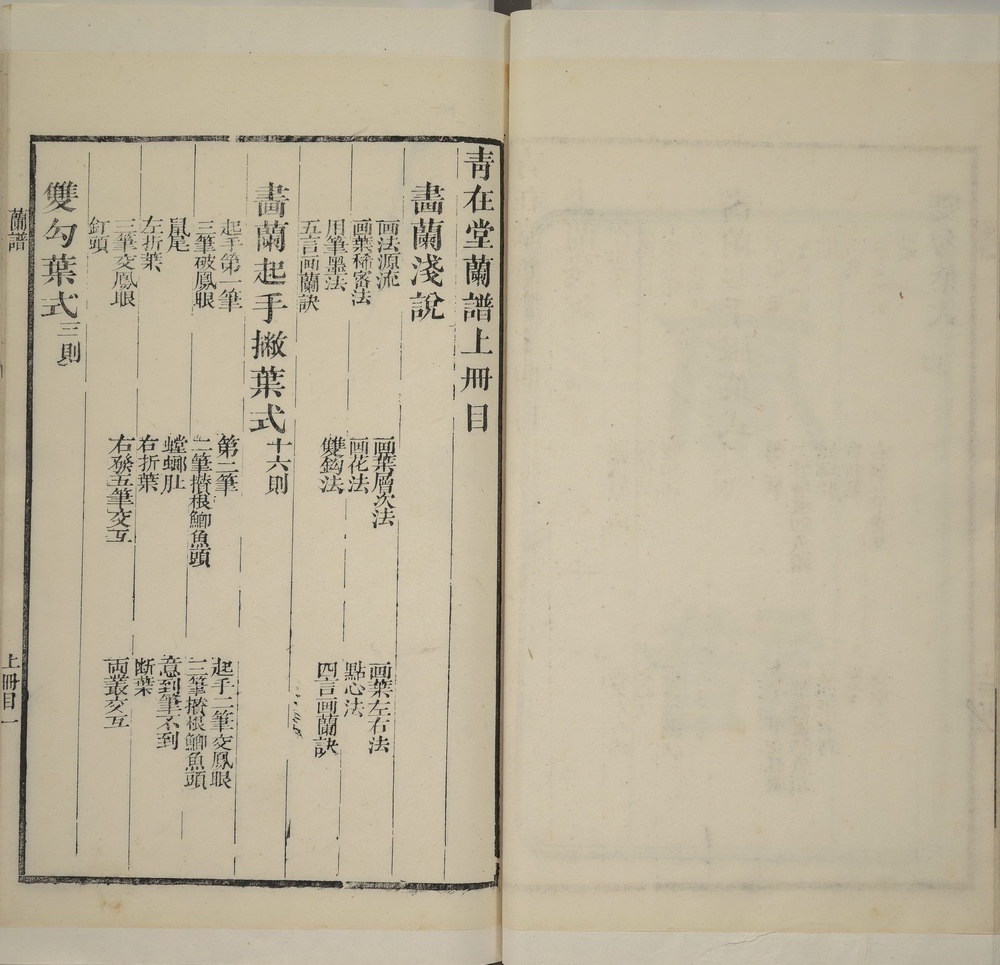 青在堂蘭譜上冊目
畫蘭淺說
画法源流　画葉層次法　画葉左右法
画葉稀密法　画花法　點心法
用筆墨法　雙鈎法　四言画蘭訣
五言画蘭訣
畫蘭起手撇葉式十六則
起手第一筆　第二筆　起手二筆交鳳眼
三筆破鳳眼　二筆攢根鯽魚頭　三筆攢根鯽魚頭
鼠尾　螳螂肚　意到筆不到
左折葉　右折葉　断葉
三筆交鳳眼　右發五筆交互　両叢交互
釘頭
雙勾葉式三則
蘭譜　上冊目一